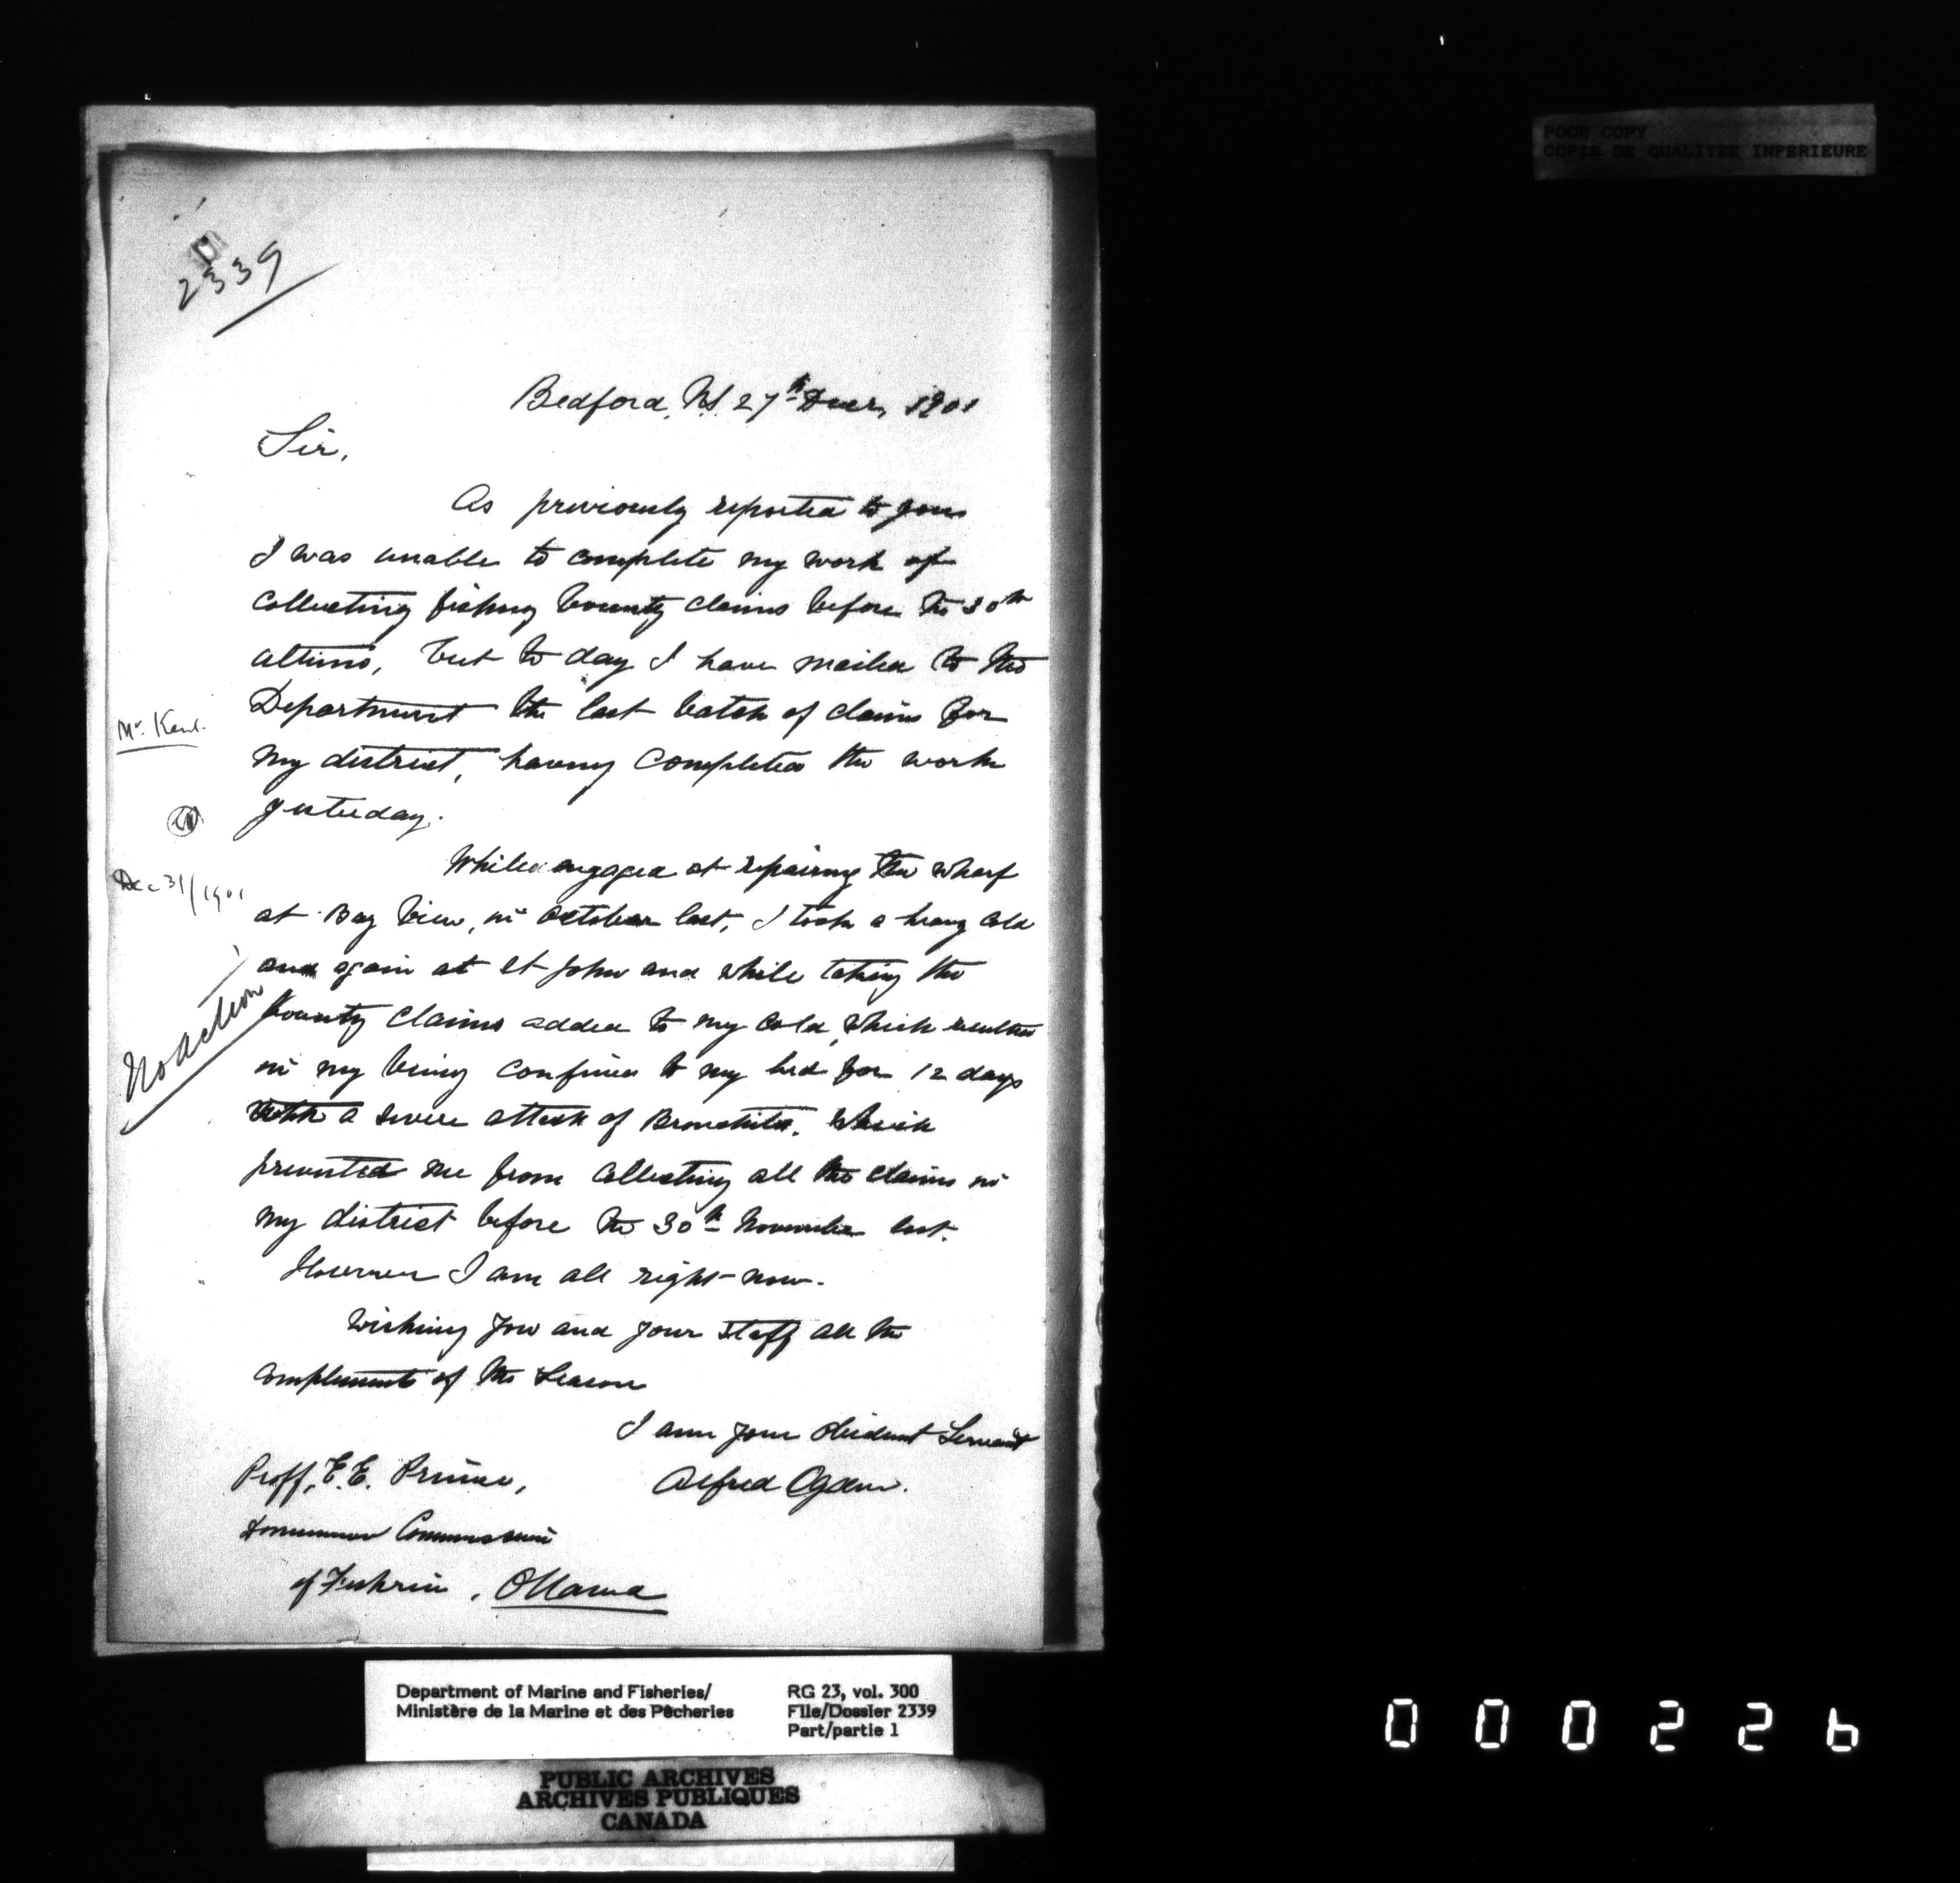 POOR COPY
COPIE DE QUALITEE INFERIEURE
2339
Bedford, N.S. 27th Decr, 1901
Sir,
As previously reported to you
I was unable to complete my work of
collecting fishing bounty claims before the 30th
ultimo, but to day I have mailed to the
Department the last batch of claims for
my district, having completed the work
yesterday.
Mr. Kent.
Dec 31/1901
No action
While engaged at repairing the wharf
at Bay View, in October last, I took a heavy cold
and again at St John and while taking the
bounty claims added to my cold, which resulted
in my being confined to my bed for 12 days
with a severe attack of Bronchitis, which
prevented me from collecting all the claims in
my district before the 30th November last.
However I am all right now.
Wishing you and your staff all the
compliments of the Season
I am your obedient Servant
Alfred Ogden.
Proff, E.E. Prince,
Dominion Commissioner
of Fisheries, Ottawa
Department of Marine and Fisheries/
Ministère de la Marine et des Pêcheries
RG 23, vol. 300
File/Dossier 2339
Part/partie 1
PUBLIC ARCHIVES
ARCHIVES PUBLIQUES
CANADA
000226